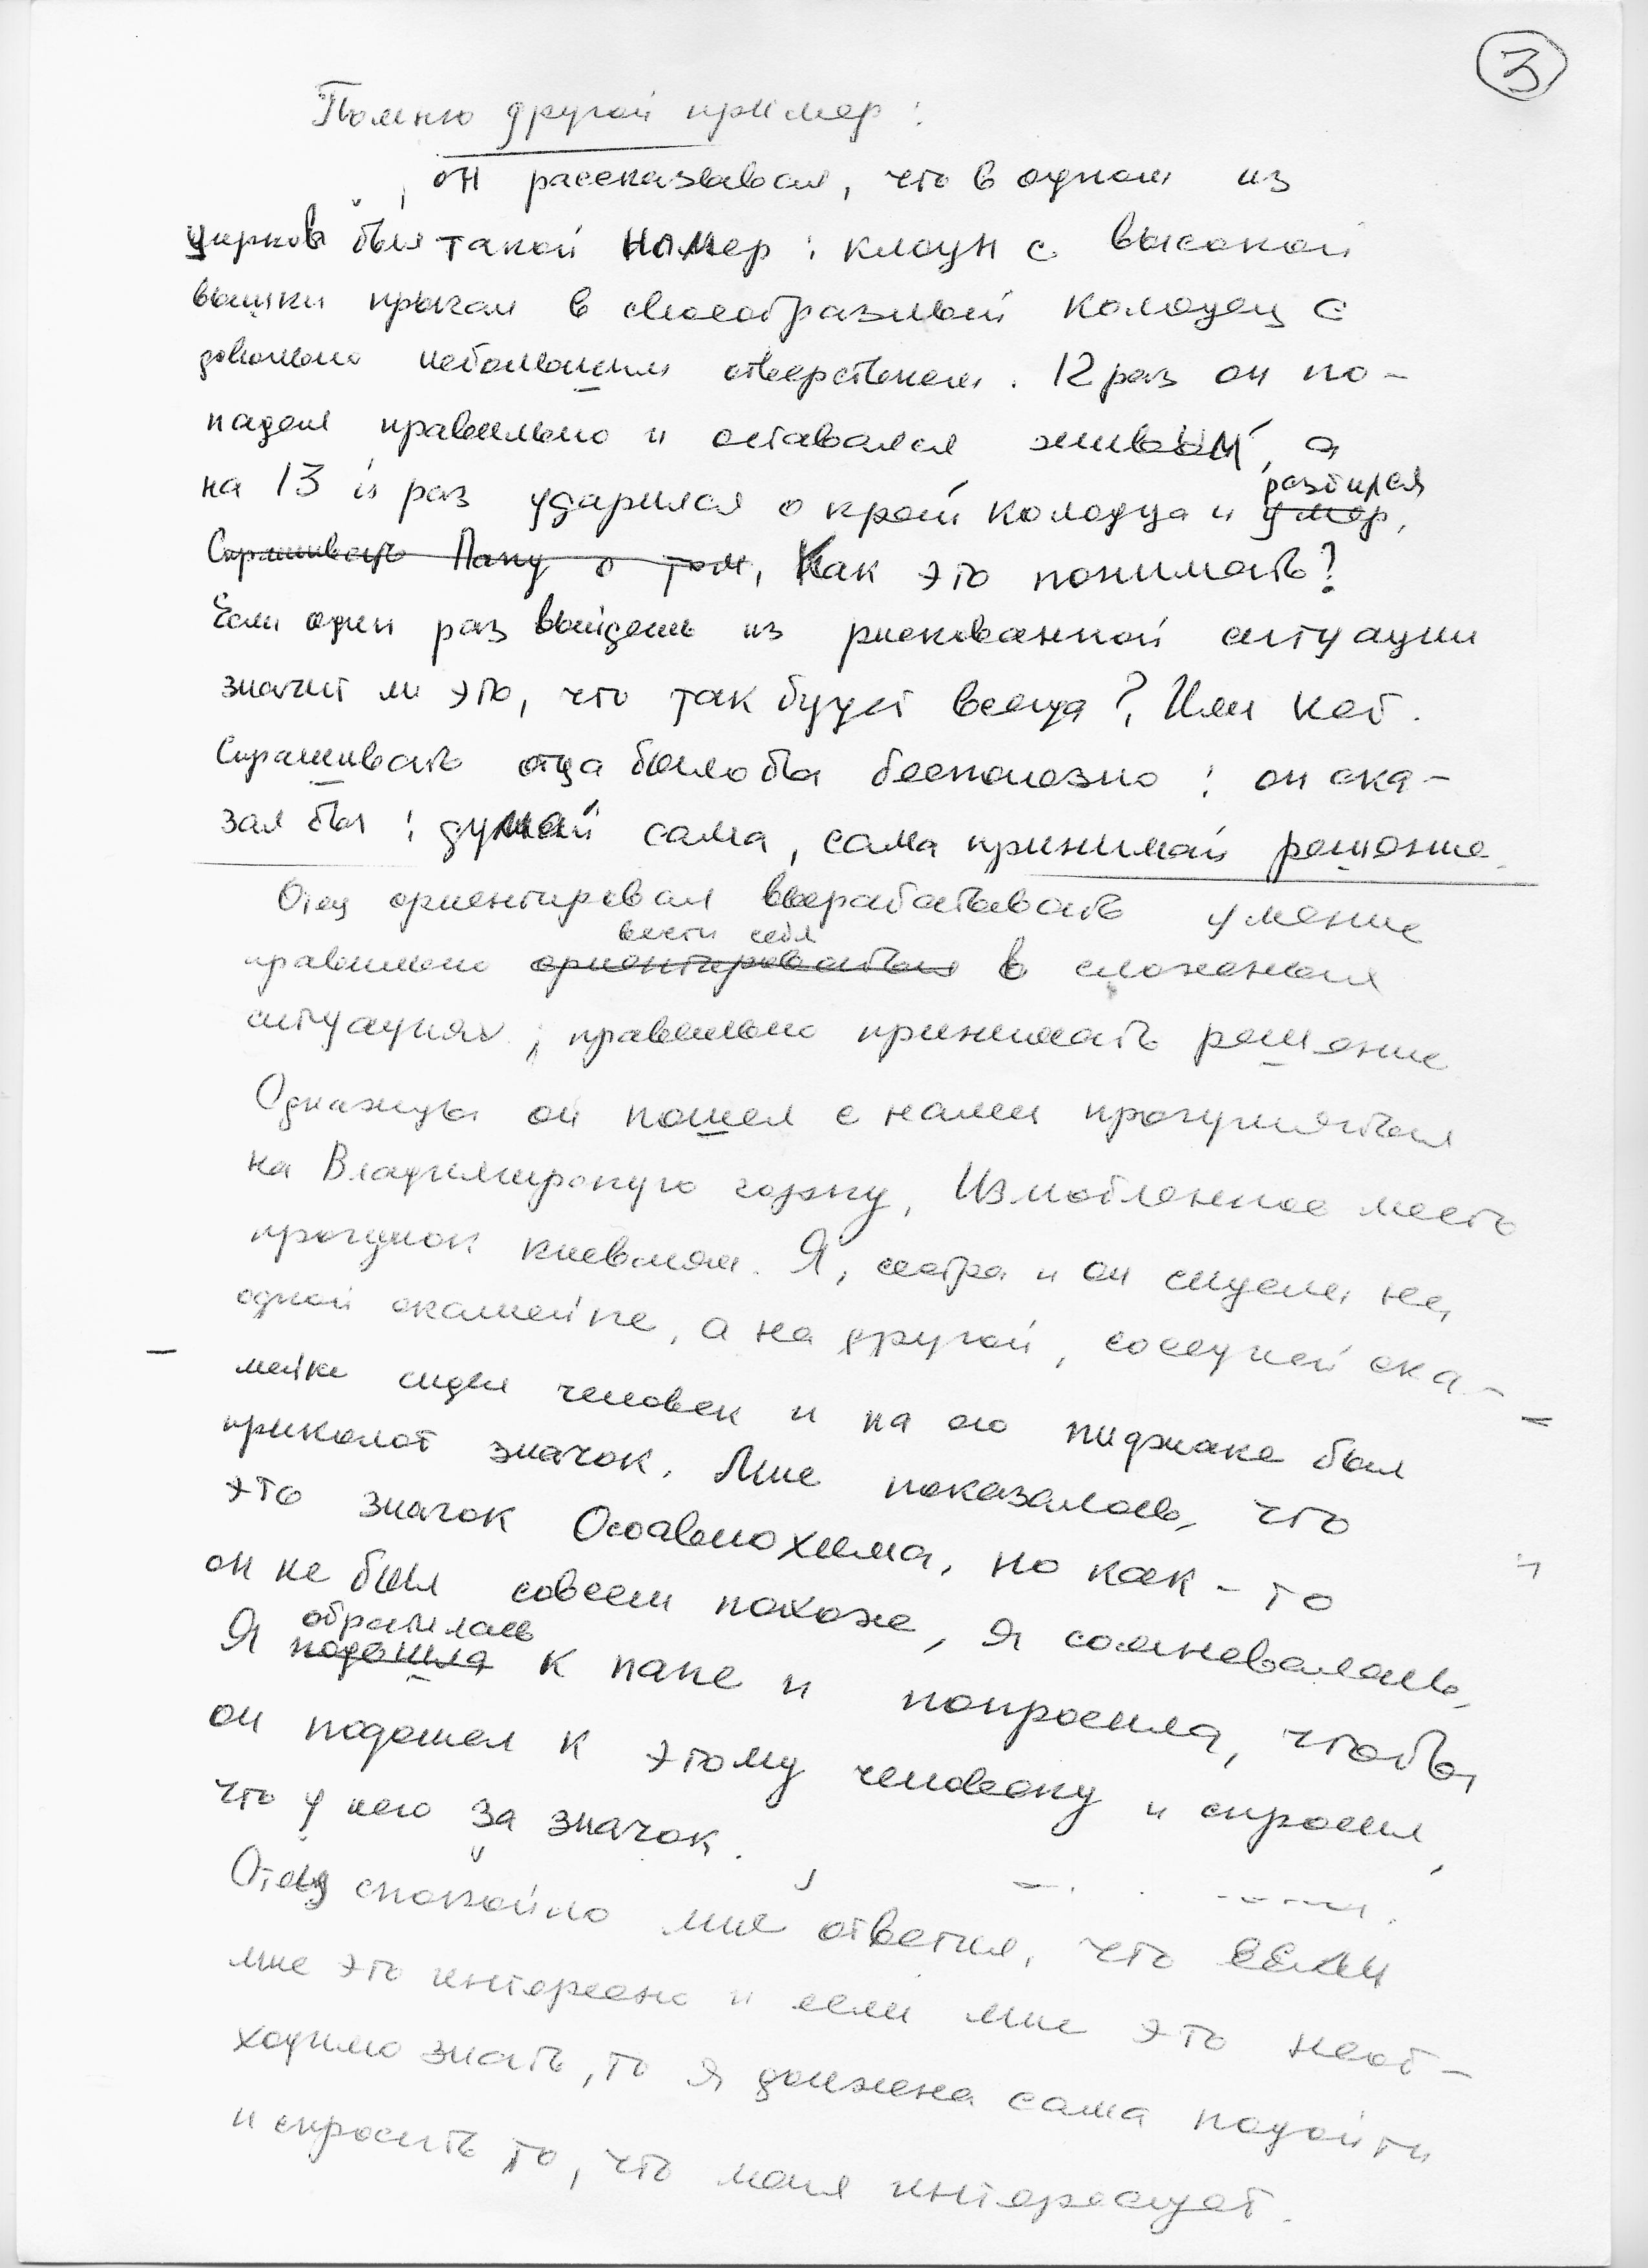 3
Помню другой пример:
он рассказывал, что в одном из
цирков был такой номер: клоун с высокой
вышки прыгал в своеобразный колодец с
довольно небольшим отверстием. 12 раз он по-
падал правильно и оставался живым, а
разбился
на 13й раз ударился о край колодца и умер,
Спрашивать Папу о том, Как это понимать?
Если один раз выйдешь из рискованной ситуации
значит ли это, что так будет всегда? Или нет.
Спрашивать отца было бы бесполезно: он ска-
зал бы: думай сама, сама принимай решение.
Отец ориентировал вырабатывать умение
вести себя
правильно ориентироваться в сложных
ситуациях, правильно принимать решение
Однажды он пошел с нами прогуляться
на Владимирскую горку, Излюбленное место
прогулок киевлян. Я, сестра и он сидели на
одной скамейке, а на другой, соседней ска-
мейке сидел человек и на его пиджаке был
приколот значок. Мне показалось, что
это значок Осоавиохима, но как-то
он не был совсем похож, я сомневалась,
обратилась
Я подошла к папе и попросила, чтобы
он подошел к этому человеку и спросил,
что у него за значок.
Отец спокойно мне ответил, что если
мне это интересно и если мне это необ-
ходимо знать, то я должна сама подойти
и спросить то, что меня интересует.